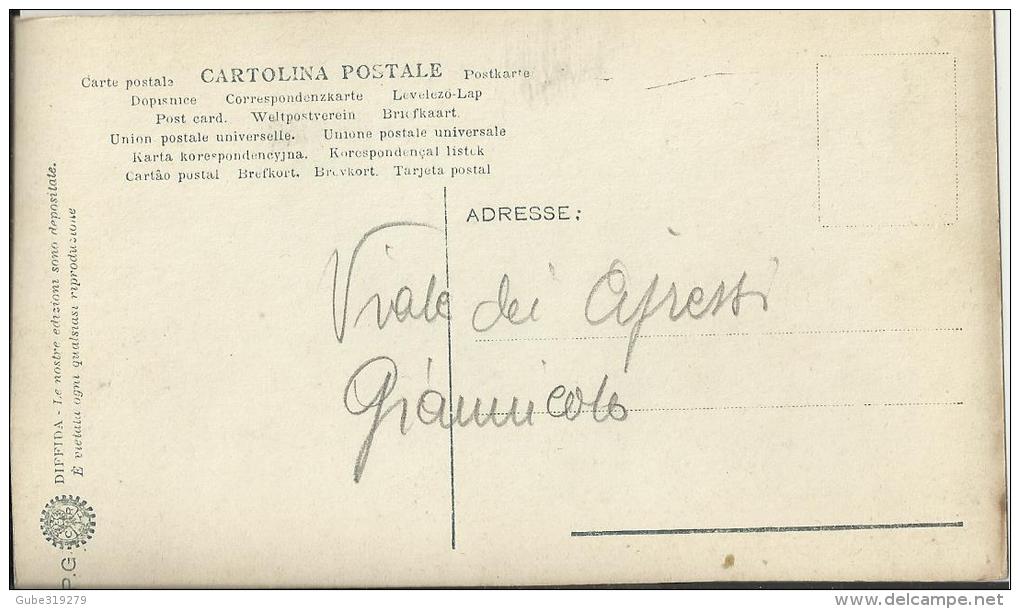 Carte postale CARTOLINA POSTALE Postkarte
Dopisnice Correspondenzkarte Levelezö-Lap
Post card. Weltpostverein Briefkaart.
Union postale universelle. Unione postale universale
Karta korespondencyjna. Korespondençal listek
Cartâo postal Brefkort. Brevkort. Tarjeta postal
ADRESSE:
Viale dei
Giannicolo
DIFFIDA - Le nostre edizioni sono depositate.
È vietata ogni qualsiasi riproduzione
P.G.
Gube319279
delcampe.net